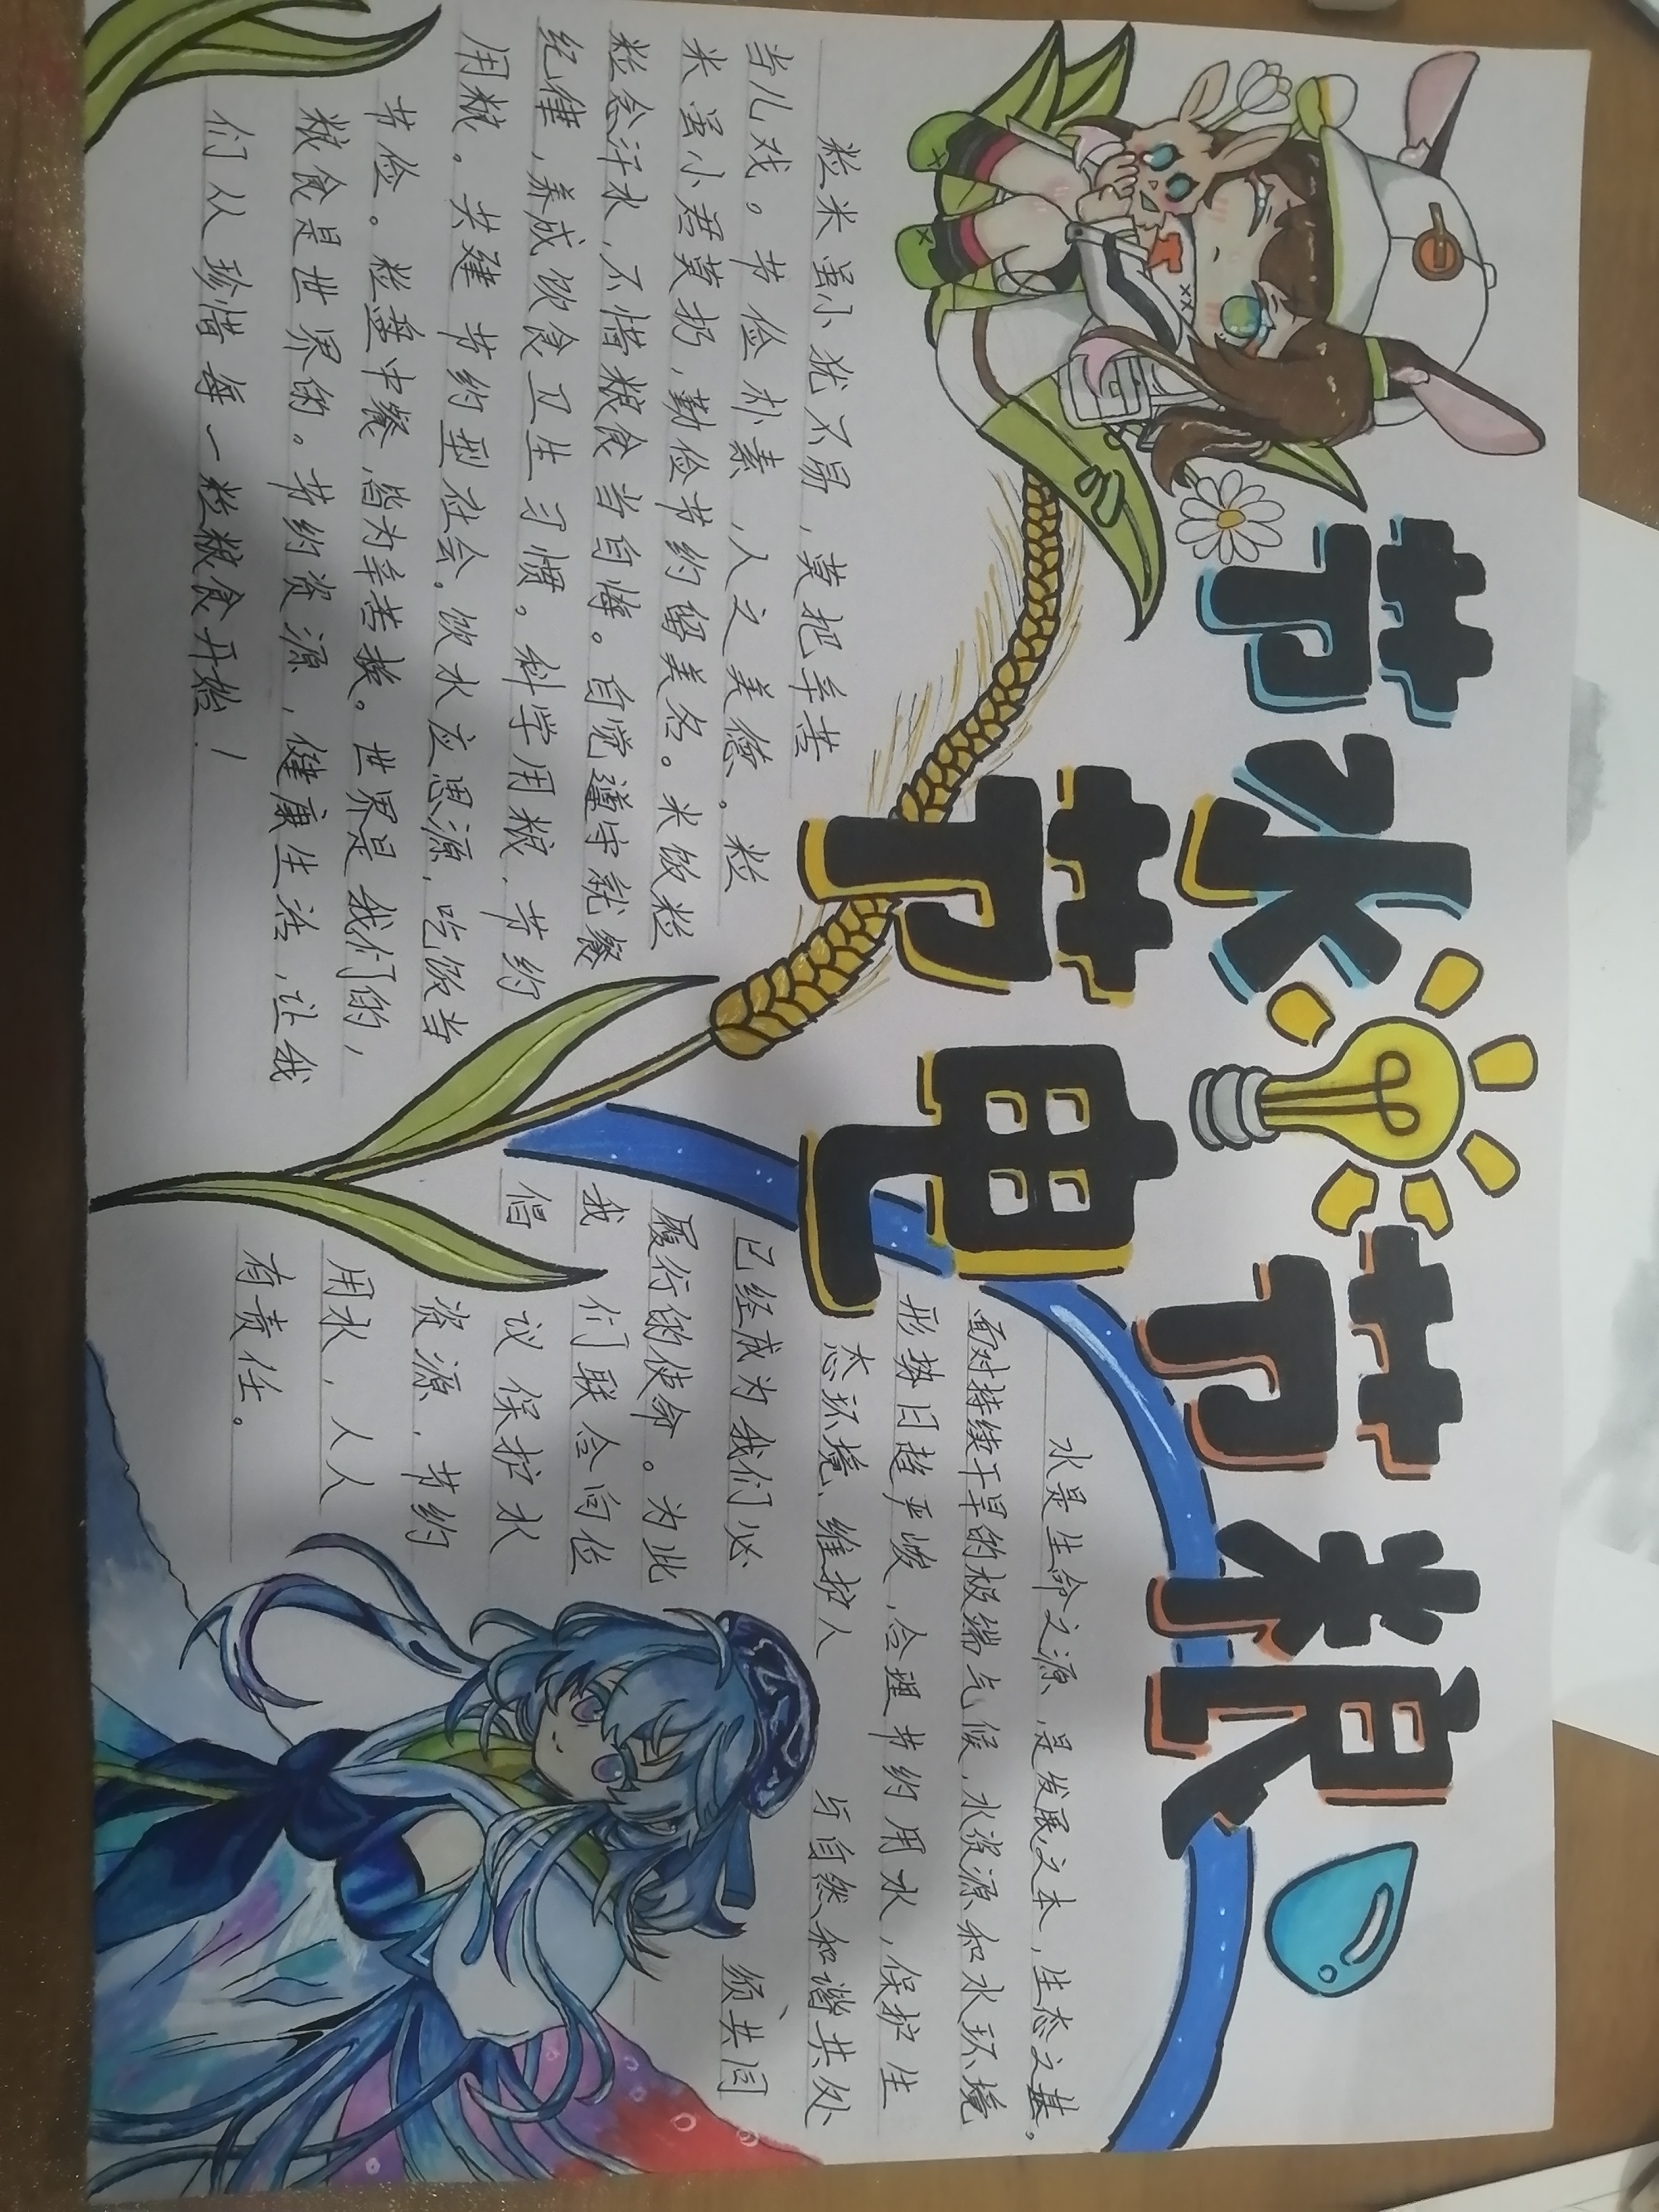 节水 节粮
节电
粒米虽小犹不易，莫把辛苦
当儿戏。节俭朴素，人之美德。粒
米虽小君莫扔，勤俭节约留美名。米饭粒
粒念汗水，不惜粮食当自悔。自觉遵守就餐
纪律，养成饮食卫生习惯。科学用粮，节约
用粮。共建节约型社会。饮水应思源，吃饭当
节俭。粒盘中餐，皆为辛苦换。世界是我们的，
粮食是世界的。节约资源，健康生活，让我
们从珍惜每一粒粮食开始！
水是生命之源，是发展之本，生态之基。
面对持续干旱的极端气候，水资源和水环境
形势日趋严峻，合理节约用水，保护生
态环境、维护人与自然和谐共处
已经成为我们必须共同
履行的使命。为此
我们联合向位
倡议保护水
资源，节约
用水，人人
有责任。